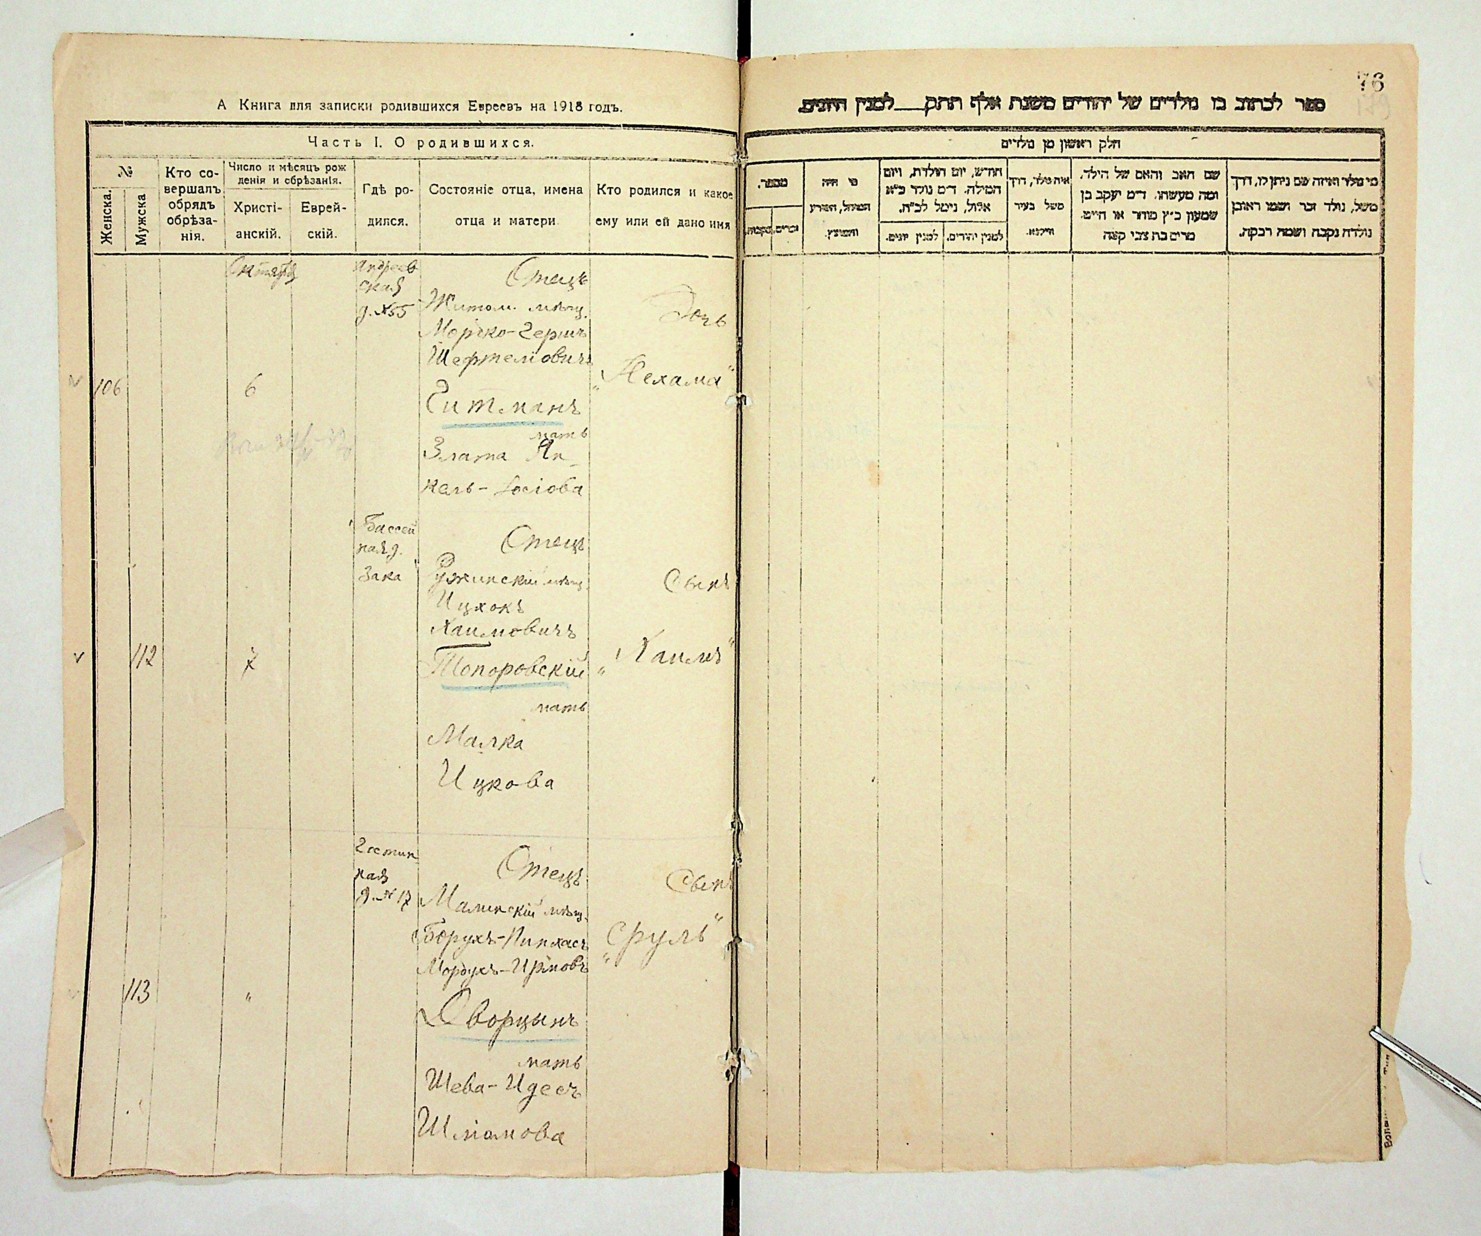 А Книга для записки родившихся Евреевъ на 1918 годъ.
Часть I. О родившихся.
№
Женска.
Мужска
Кто со-
вершалъ
обрядъ
обрѣза-
нія.
Число и мѣсяцъ рож
денія и обрѣзанія.
Христі-
анскій.
Еврей-
скій.
Гдѣ ро-
дился.
Состояніе отца, имена
отца и матери
Кто родился и какое
ему или ей дано имя
106
6
д. №55
Отецъ
Житом. мѣщ.
Мошко-Герш
Шефтеліовичъ
Гитманъ
мать
Злата Ян-
кель-Іосіова
Дочь
„Нехама"
112
7
Бассей
ная д.
Зака
Отецъ
Ружинскій мѣщ.
Ицхокъ
Хаимовичъ
Топоровскій
мать
Малка
Ицкова
Сынъ
„Хаимъ"
113
"
Гостин
ная
д. № 17
Отецъ
мѣщ.
Борухъ-Пинхасъ
Дворцынъ
мать
Шева-Идесъ
Шліомова
Сынъ
„Сруль"
76
ספר לכתוב בו נולדים של יהודים משנת אלף תתק__ למנין היונים.
חלק ראשון מן נולדים
מספר.
זכרים.
נקבות.
מי היה
המוהל, הפורע
והמוצץ
חדש, יום הולדת, ויום
המילה. ד״מ נולד כ״א
אלול, נימל לכ״ח.
למנין יונים.
למנין יהודים.
איה נולד, דרך
משל בעיר
ווילנא.
שם האב והאם של הילד,
ומה מעשהו. ד״מ יעקב בן
שמעון כ״ץ סוחר או חייט.
מרים בת צבי קצה
מי נולד ואיזה שם ניתן לו, דרך
משל, נולד זכר ושמו ראובן
נולדה נקבה ושמה רבקה.